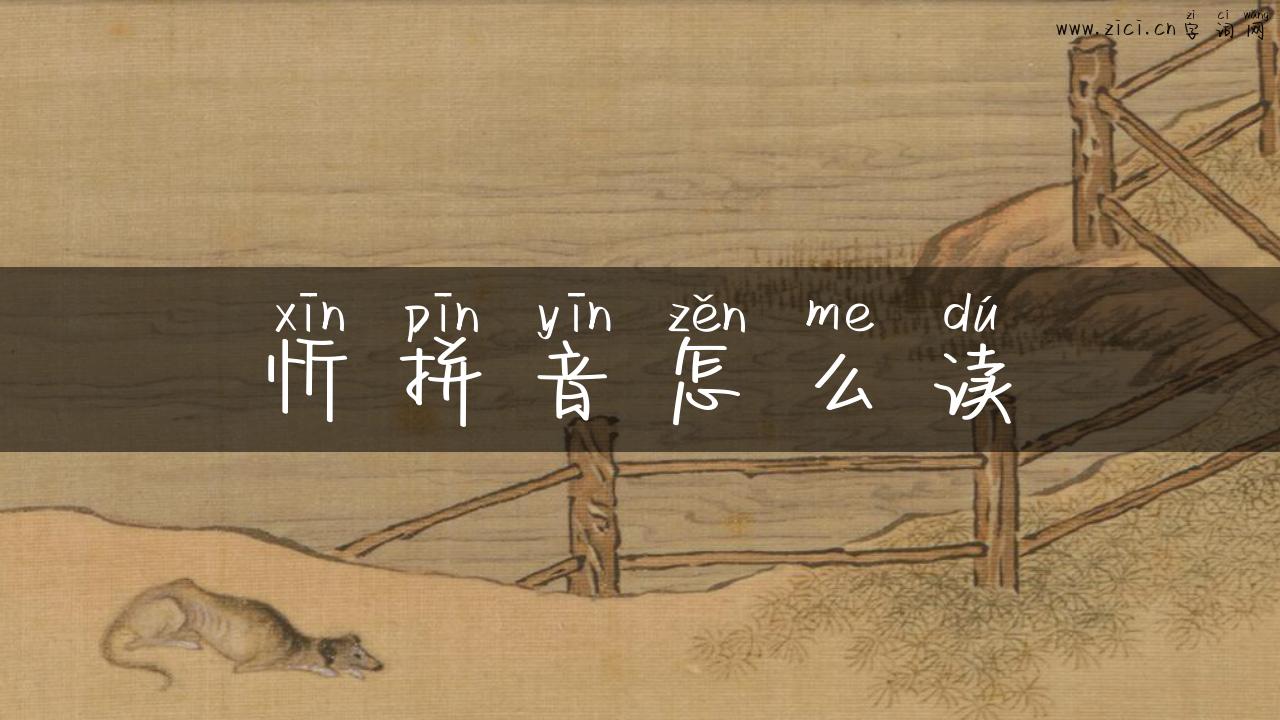 zì cí wǎng
www.zici.cn 字词网
xīn pīn yīn zěn me dú
忻拼音怎么读